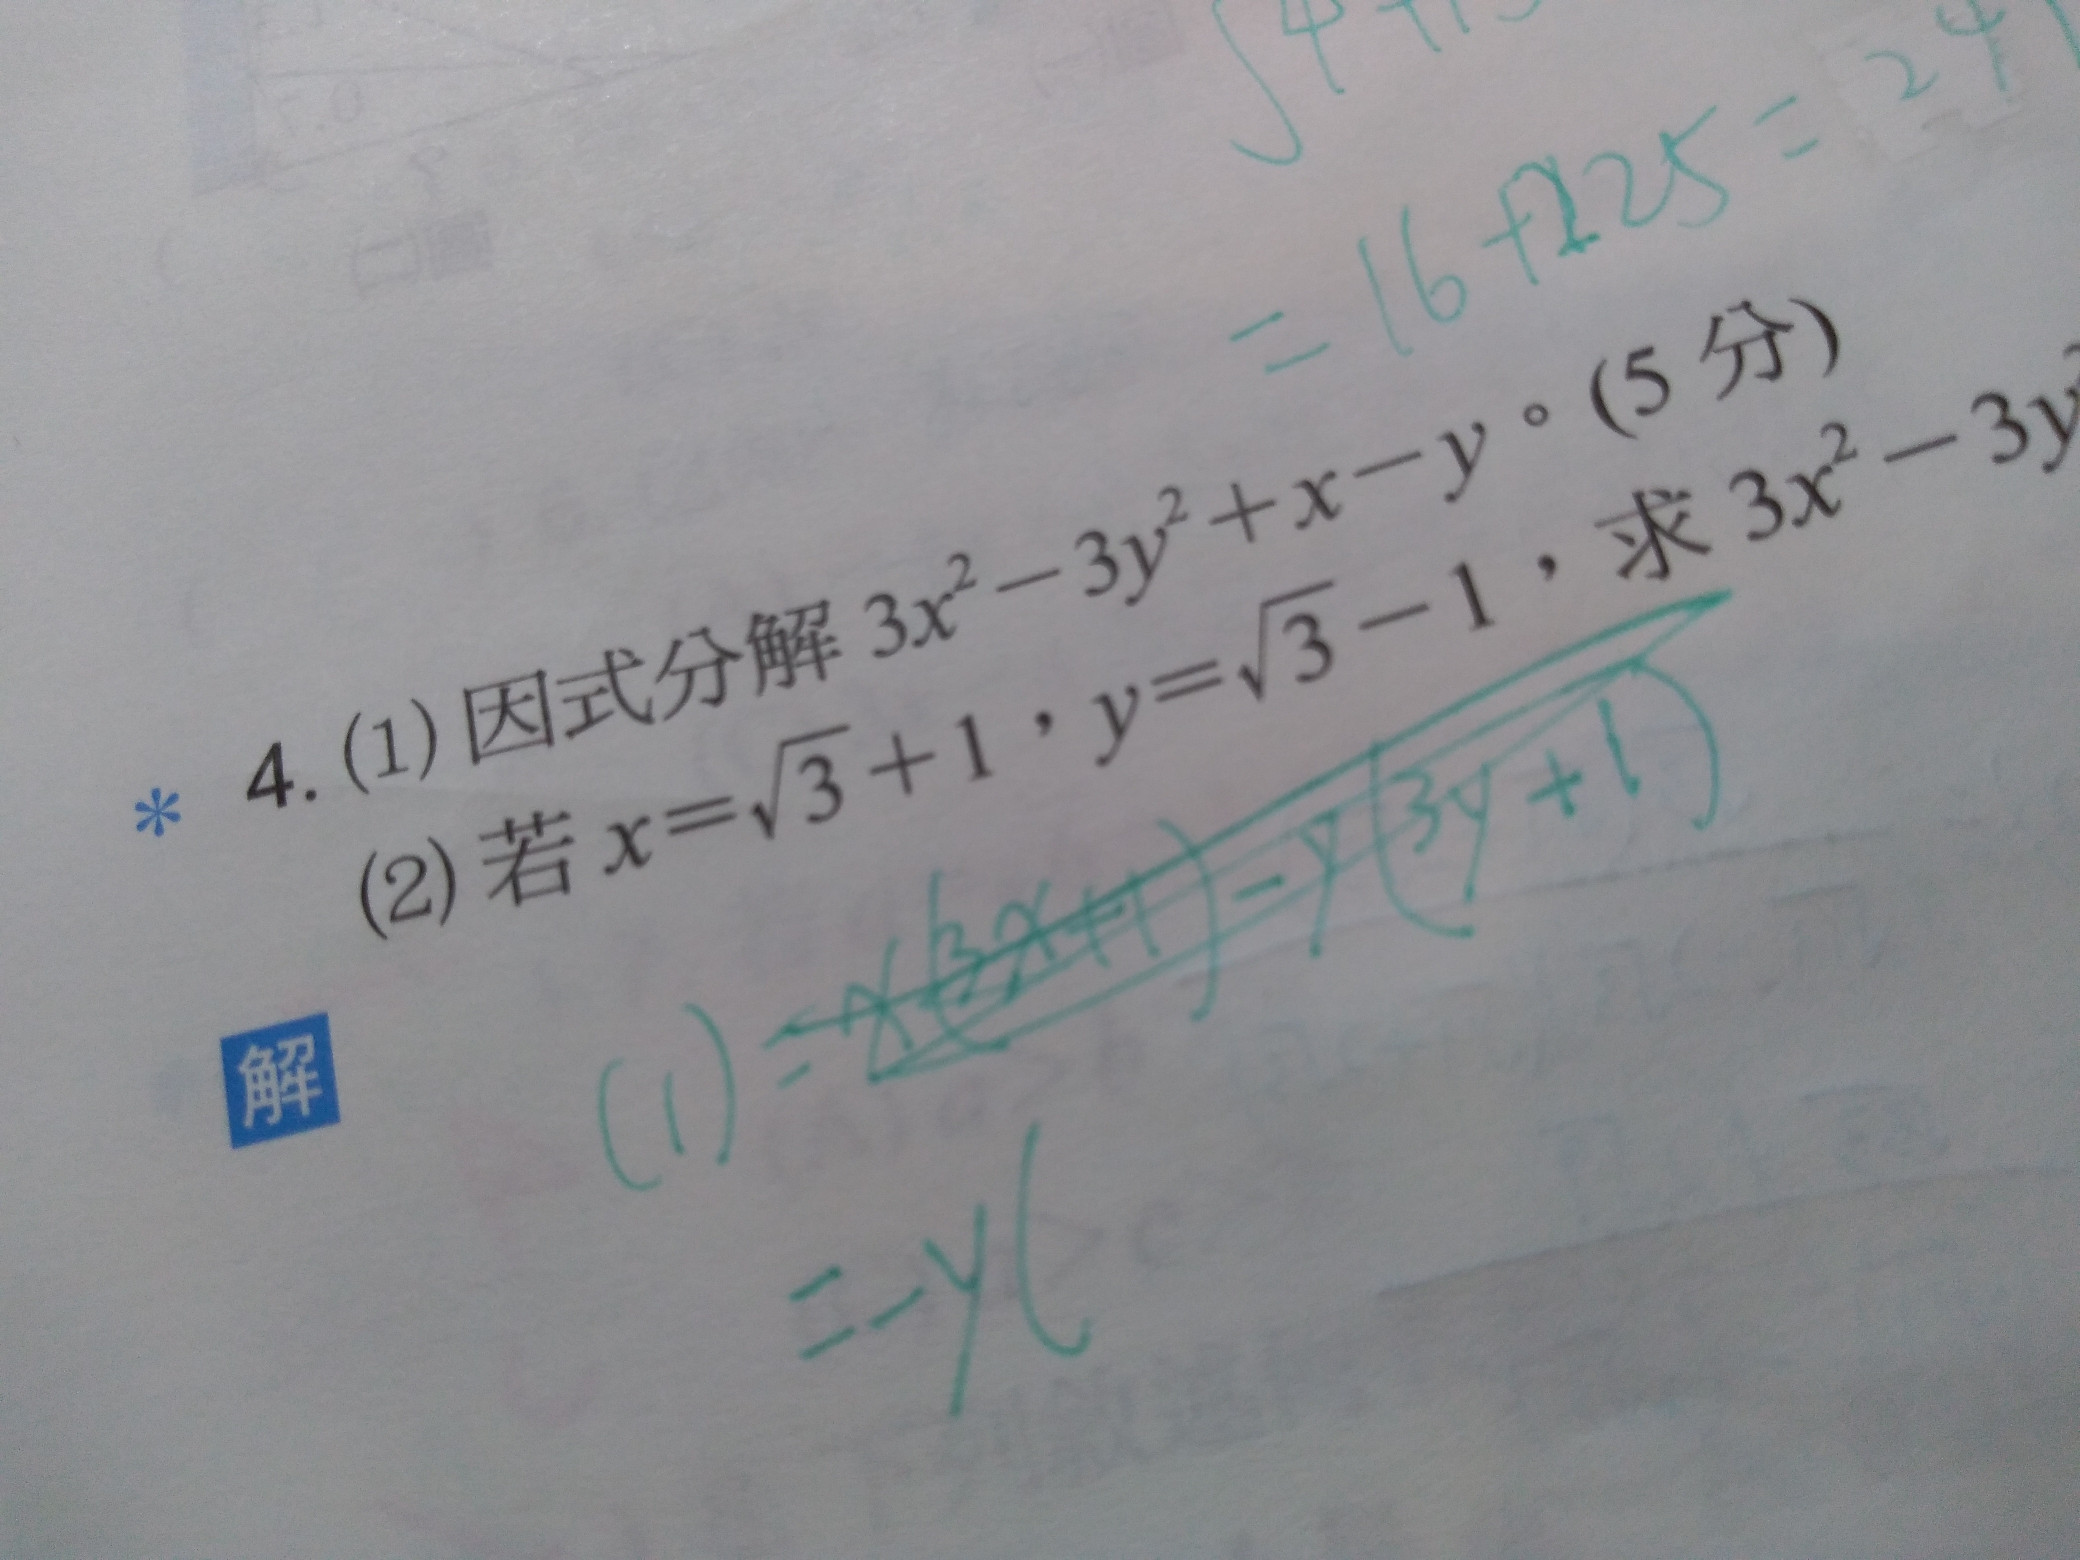 = 16 + 225 = 24
* 4. (1) 因式分解 3x² − 3y² + x − y。(5 分)
(2) 若 x = √3 + 1，y = √3 − 1，求 3x² − 3y²
解
(1) = x(3x+1) − y(3y+1)
= −y(